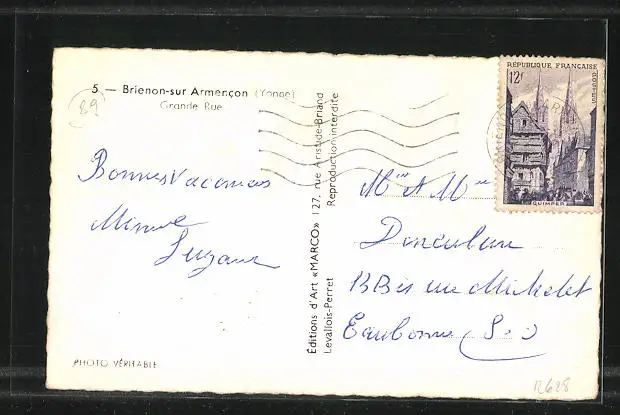 5. — Brienon-sur Armençon (Yonne)
Grande Rue
89
Bonnes Vacances
Minne
Suzanne
PHOTO VÉRITABLE
Éditions d'Art «MARCO» 127, rue Aristide-Briand
Levallois-Perret
Reproduction interdite
RÉPUBLIQUE FRANÇAISE
12F
POSTES
QUIMPER
Mr et Mme
rue Michelet
Eaubonne (S-O)
R628